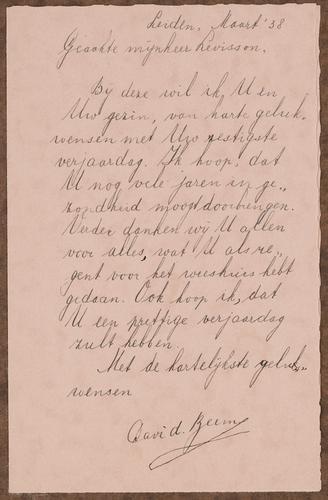 Leiden, Maart '38
Geachte mijnheer Levisson.
Bij deze wil ik, U en
Uw gezin, van harte geluk-
wensen met Uw zestigste
verjaardag. Ik hoop, dat
U nog vele jaren in ge-
zondheid moogt doorbrengen.
Verder danken wij U allen
voor alles, wat U als re-
gent voor het weeshuis hebt
gedaan. Ook hoop ik, dat
U een prettige verjaardag
zult hebben.
Met de hartelijkste geluk-
wensen
David. Beem